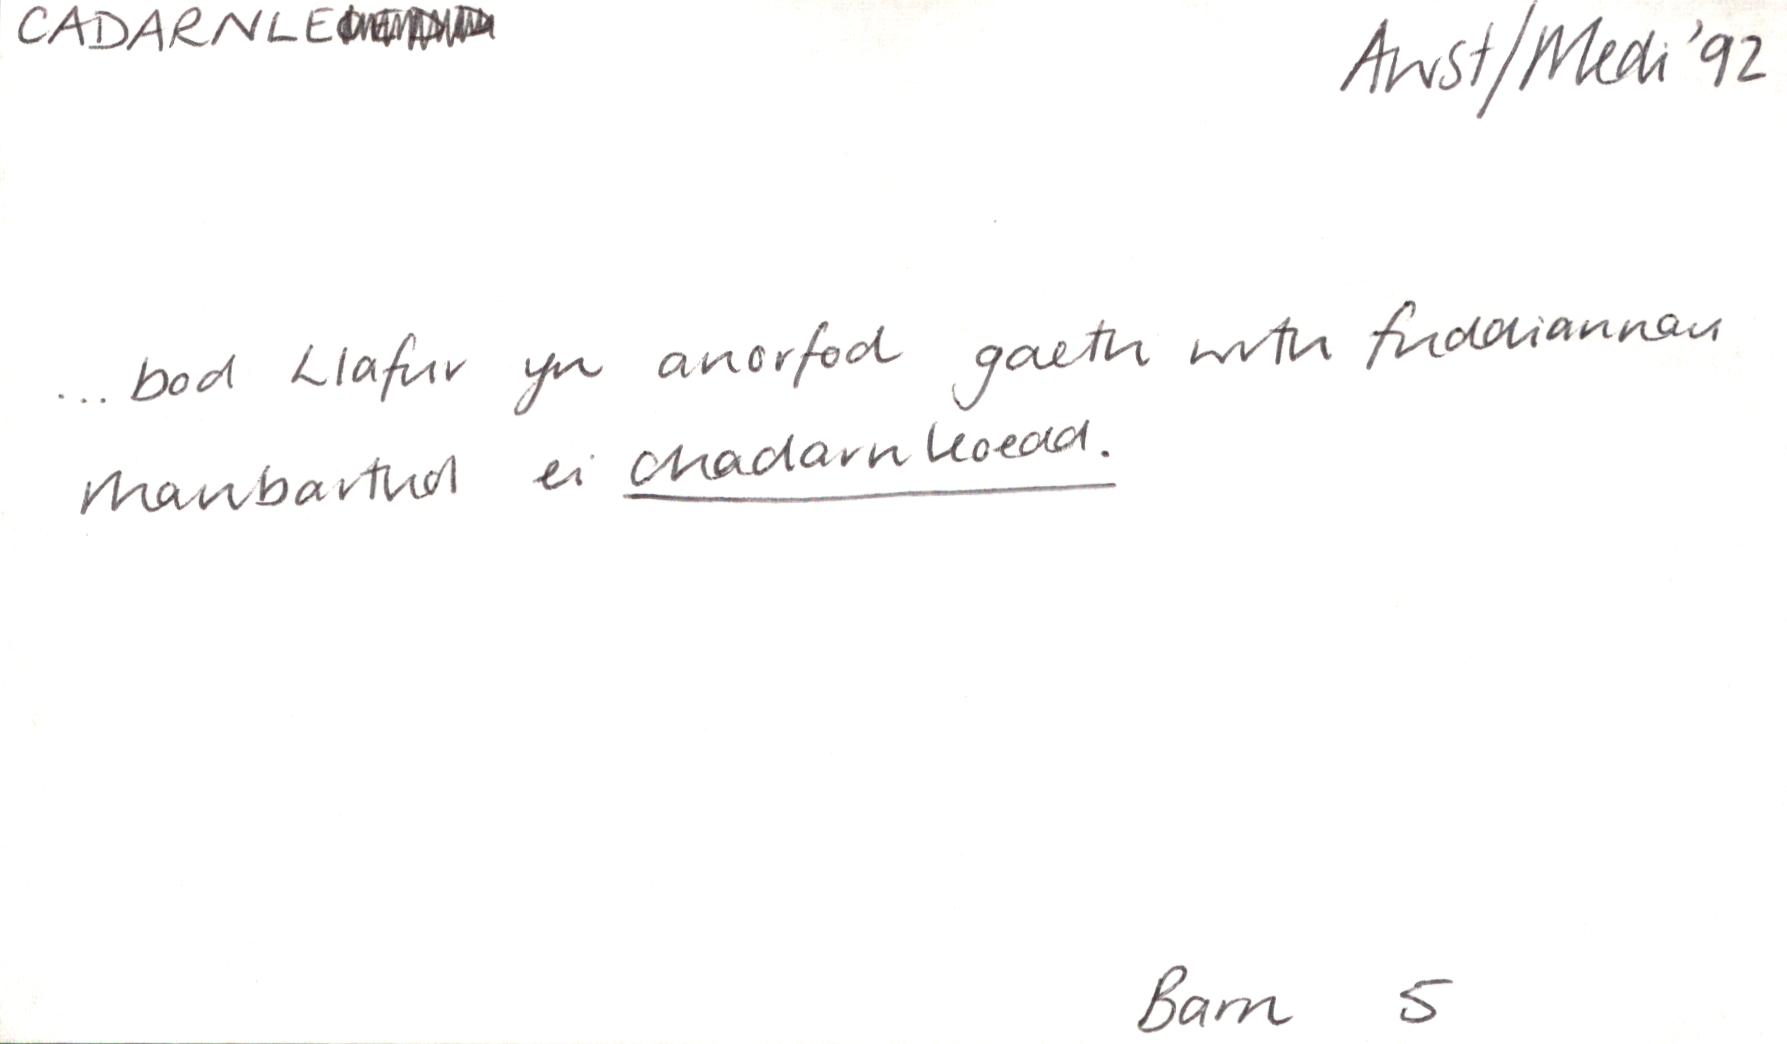 CADARNLE
Awst/Medi '92
...bod Llafur yn anorfod gaeth wrth fuddiannau
rhanbarthol ei chadarnleoedd.
Barn 5